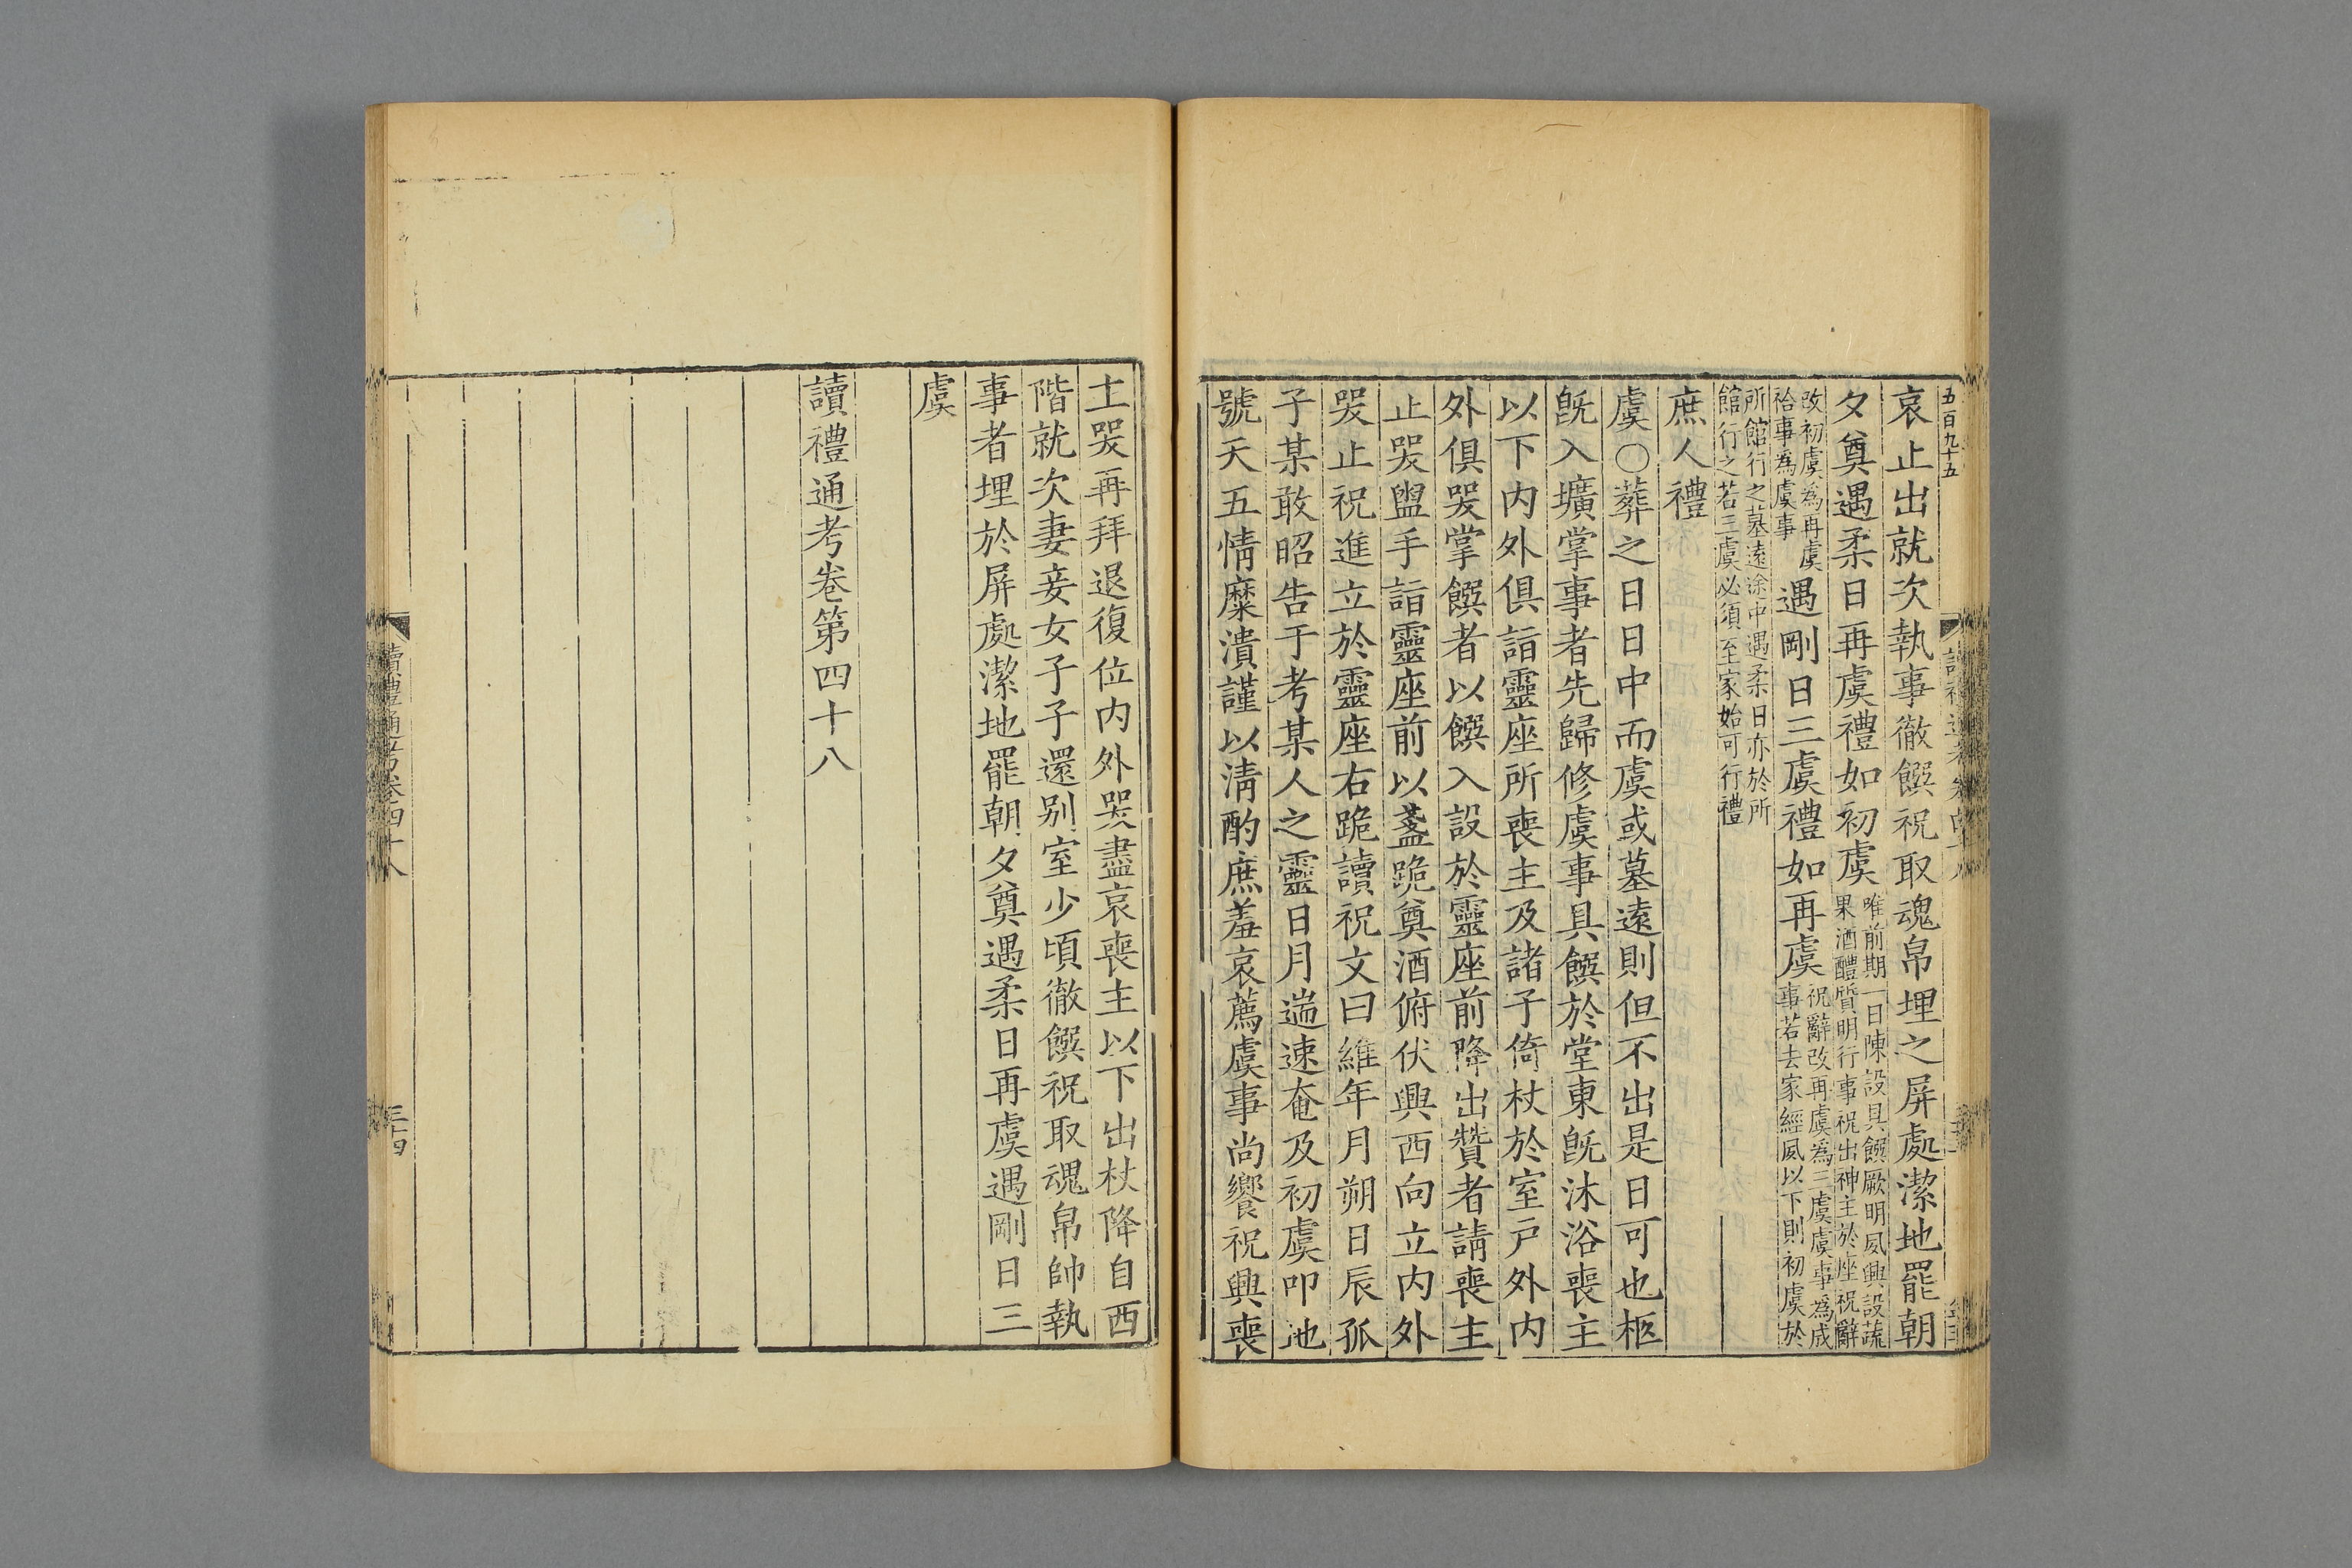 五百九十五
哀止出就次執事徹饌祝取魂帛埋之屏處潔地罷朝
夕奠遇柔日再虞禮如初虞唯前期一日陳設具饌厥明夙興設蔬
果酒醴質明行事祝出神主於座祝辭
改初虞爲再虞
祫事爲虞事遇剛日三虞禮如再虞祝辭改再虞爲三虞虞事爲成
事若去家經夙以下則初虞於
所館行之墓遠途中遇柔日亦於所
館行之若三虞必須至家始可行禮
庶人禮
虞○葬之日日中而虞或墓遠則但不出是日可也柩
旣入壙掌事者先歸修虞事具饌於堂東旣沐浴喪主
以下内外俱詣靈座所喪主及諸子倚杖於室戶外内
外俱哭掌饌者以饌入設於靈座前降出贊者請喪主
止哭盥手詣靈座前以盞跪奠酒俯伏興西向立内外
哭止祝進立於靈座右跪讀祝文曰維年月朔日辰孤
子某敢昭告于考某人之靈日月遄速奄及初虞叩地
號天五情糜潰謹以淸酌庶羞哀薦虞事尚饗祝興喪
主哭再拜退復位内外哭盡哀喪主以下出杖降自西
階就次妻妾女子子還别室少頃徹饌祝取魂帛帥執
事者埋於屏處潔地罷朝夕奠遇柔日再虞遇剛日三
虞
讀禮通考卷第四十八
讀禮通考卷四十八
三十四